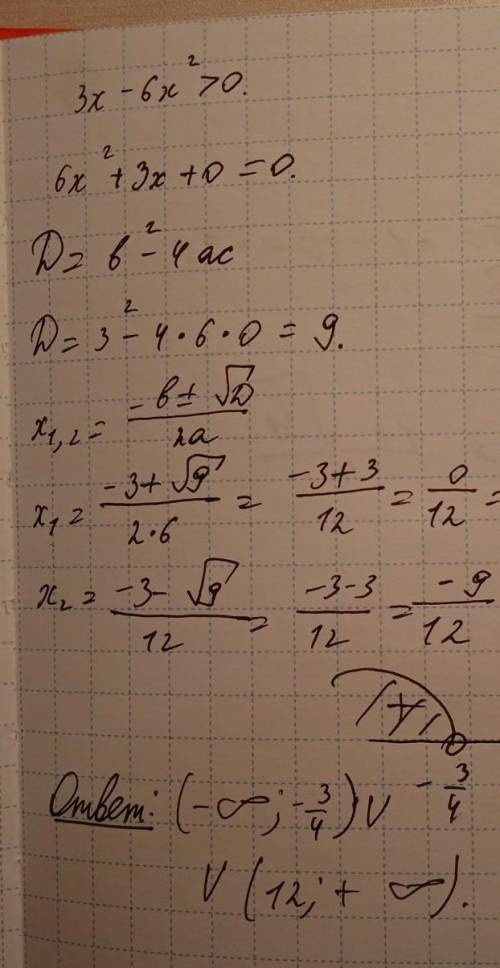 3x - 6x² > 0.
6x² + 3x + 0 = 0.
D = b² - 4ac
D = 3² - 4 · 6 · 0 = 9.
x₁,₂ = (-b ± √D)/(2a)
x₁ = (-3 + √9)/(2·6) = (-3 + 3)/12 = 0/12 =
x₂ = (-3 - √9)/12 = (-3 - 3)/12 = -9/12
+
-3/4
Ответ: (-∞; -3/4) ∪
∪ (12; + ∞).